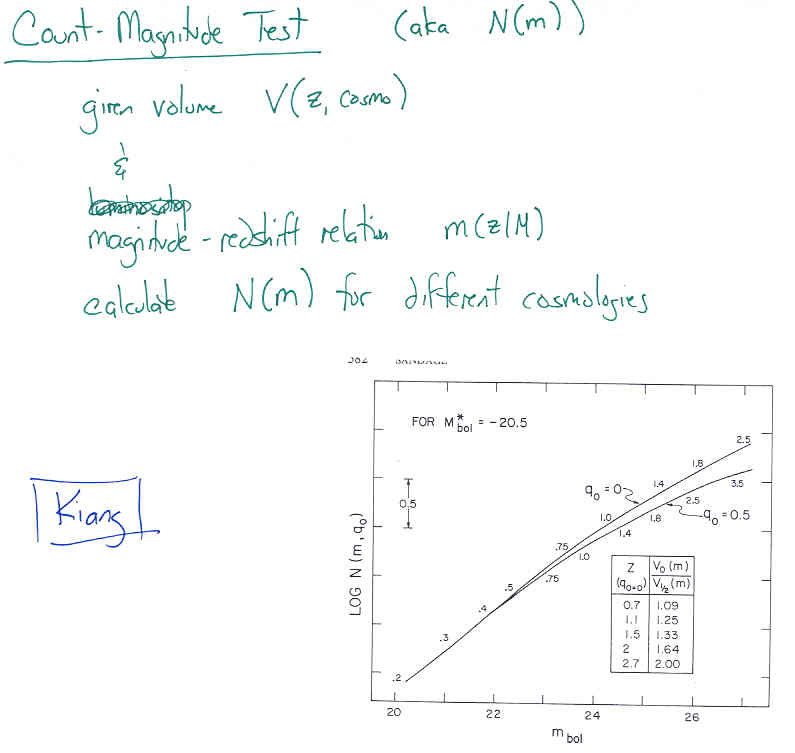 Count-Magnitude Test (aka N(m))
given volume V(z, cosmo)
&
magnitude-redshift relation m(z|M)
calculate N(m) for different cosmologies
Kiang
FOR M*bol = -20.5
LOG N (m, q₀)
0.5
q₀ = 0
q₀ = 0.5
.2
.3
.4
.5
.75
1.0
1.4
1.8
2.5
.75
1.0
1.4
1.8
2.5
3.5
Z (q₀=0) V₀ (m) / V½ (m)
0.7 1.09
1.1 1.25
1.5 1.33
2 1.64
2.7 2.00
20 22 24 26
m bol